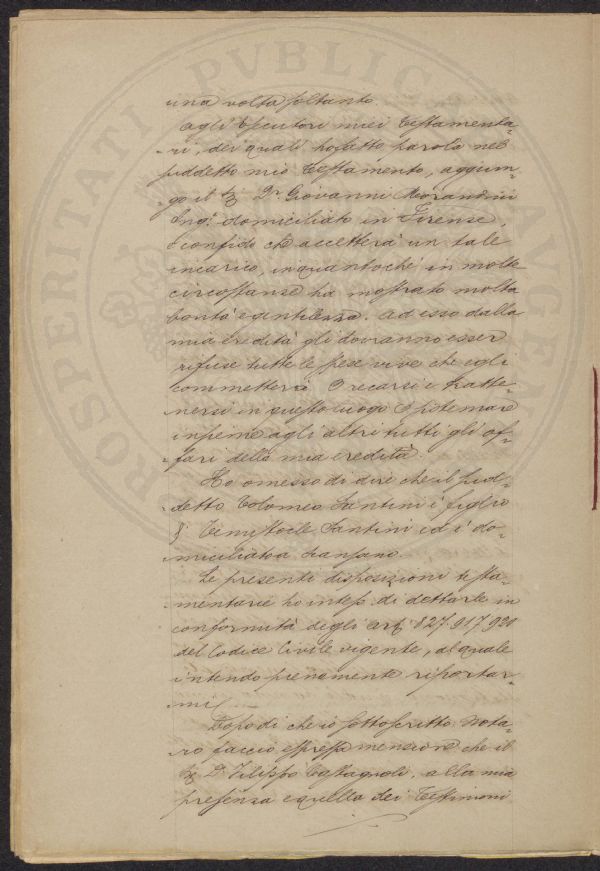 PROSPERITATI PUBLICÆ AUGENDÆ
una volta soltanto.
Agli Esecutori miei Testamenta-
ri, dei quali ho fatto parola nel
suddetto mio Testamento, aggiun-
go il Sig Dr. Giovanni Morandini
Ing.e domiciliato in Firenze,
e confido che accetterà un tale
incarico, inquantochè in molte
circostanze ha mostrato molta
bontà e gentilezza. Ad esso dalla
mia eredità gli dovranno esser
rifuse tutte le spese vive che egli
commetterà e recarsi e tratte-
nersi in questo luogo e sistemare
insieme agli altri tutti gli af-
fari della mia eredità.
Ho omesso di dire che il sud-
detto Tolomeo Santini è figlio
di Temistocle Santini ed è do-
miciliato a Scansano.
Le presenti disposizioni testa-
mentarie ho inteso di dettarle in
conformità degli art. 827. 917. 920
del Codice Civile vigente, al quale
intendo pienamente riportar-
mi
Dopo di che io sottoscritto Nota-
ro faccio espressa menzione che il
Sig Dr. Filippo Castagnoli, alla mia
presenza e quella dei Testimoni